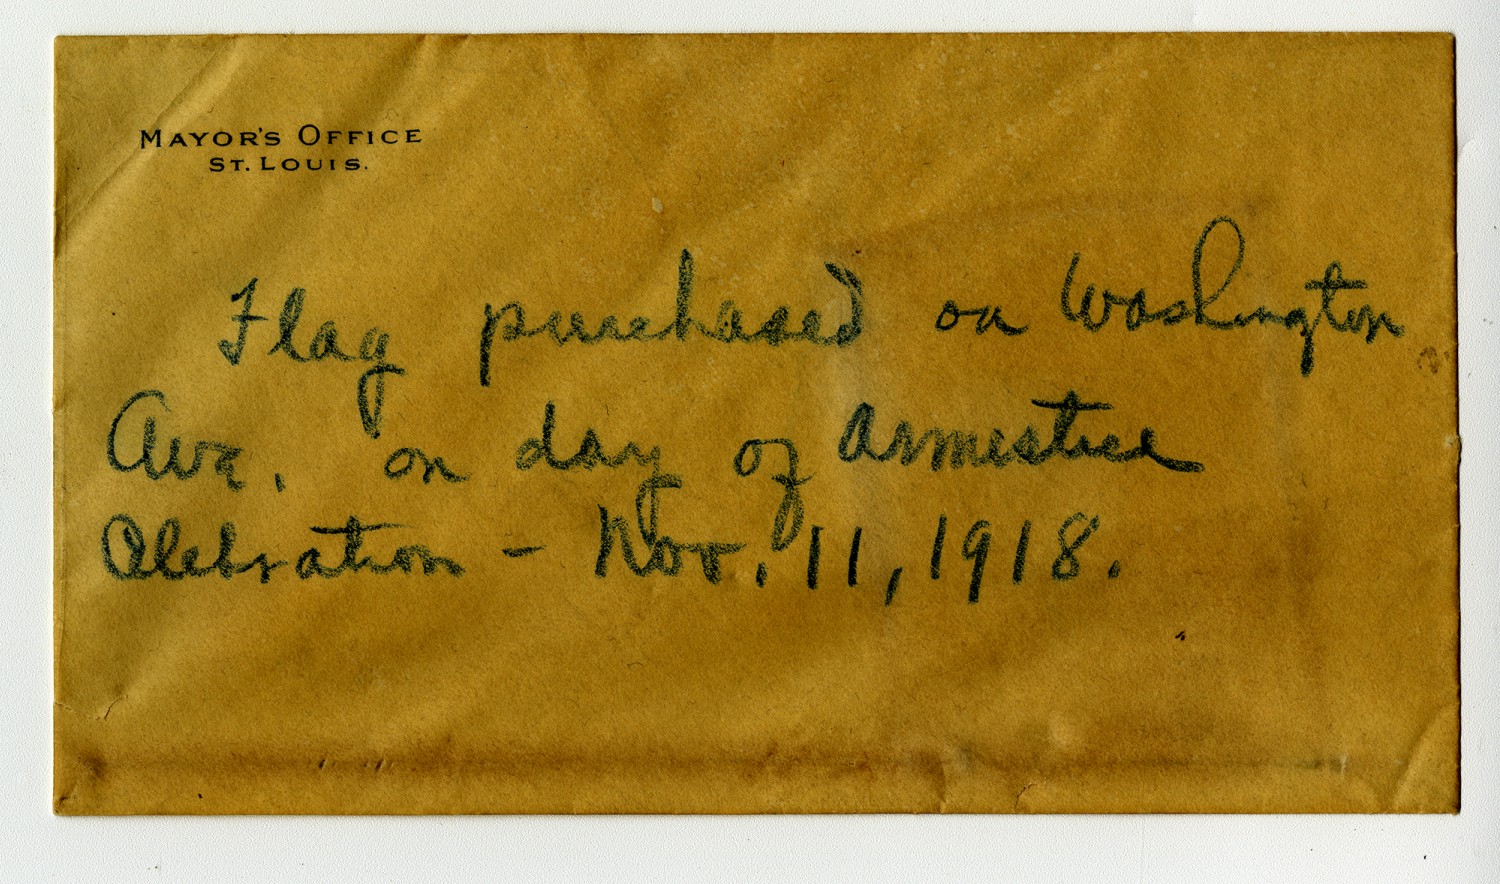 MAYOR'S OFFICE
ST. LOUIS.
Flag purchased on Washington
Ave. on day of Armestice
Celebration - Nov. 11, 1918.